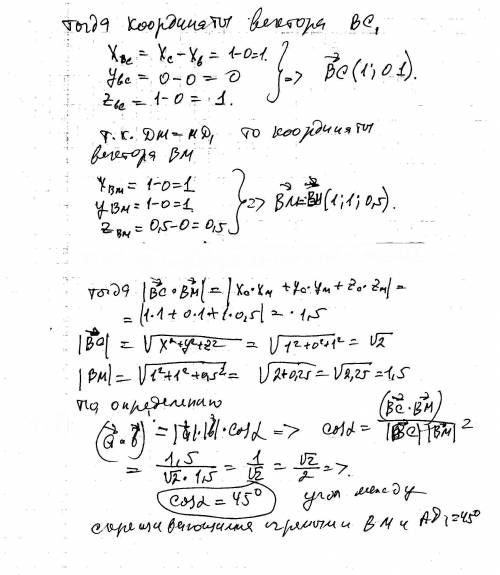 тогда координаты вектора BC₁
x_BC = x_C − x_B = 1−0=1.
y_BC = 0−0 = 0
z_BC = 1−0 = 1.
=> BC(1; 0 1).
т.к. DM=MD₁ то координаты
вектора BM
x_BM = 1−0=1
y_BM = 1−0=1
z_BM = 0,5−0=0,5
=> BM (1; 1; 0,5).
тогда |BC·BM| = |x_C·x_M + y_C·y_M + z_C·z_M| =
= |1·1 + 0·1 + 1·0,5| = 1,5
|BC| = √x²+y²+z² = √1²+0²+1² = √2
|BM| = √1²+1²+0,5² = √2+0,25 = √2,25 = 1,5
По определению
(a·b) = |a|·|b|·cosα => cosα = (BC·BM)/|BC|·|BM| =
= 1,5/√2·1,5 = 1/√2 = √2/2 =>.
cosα = 45° угол между
скрещивающимися прямыми BM и AD₁=45°